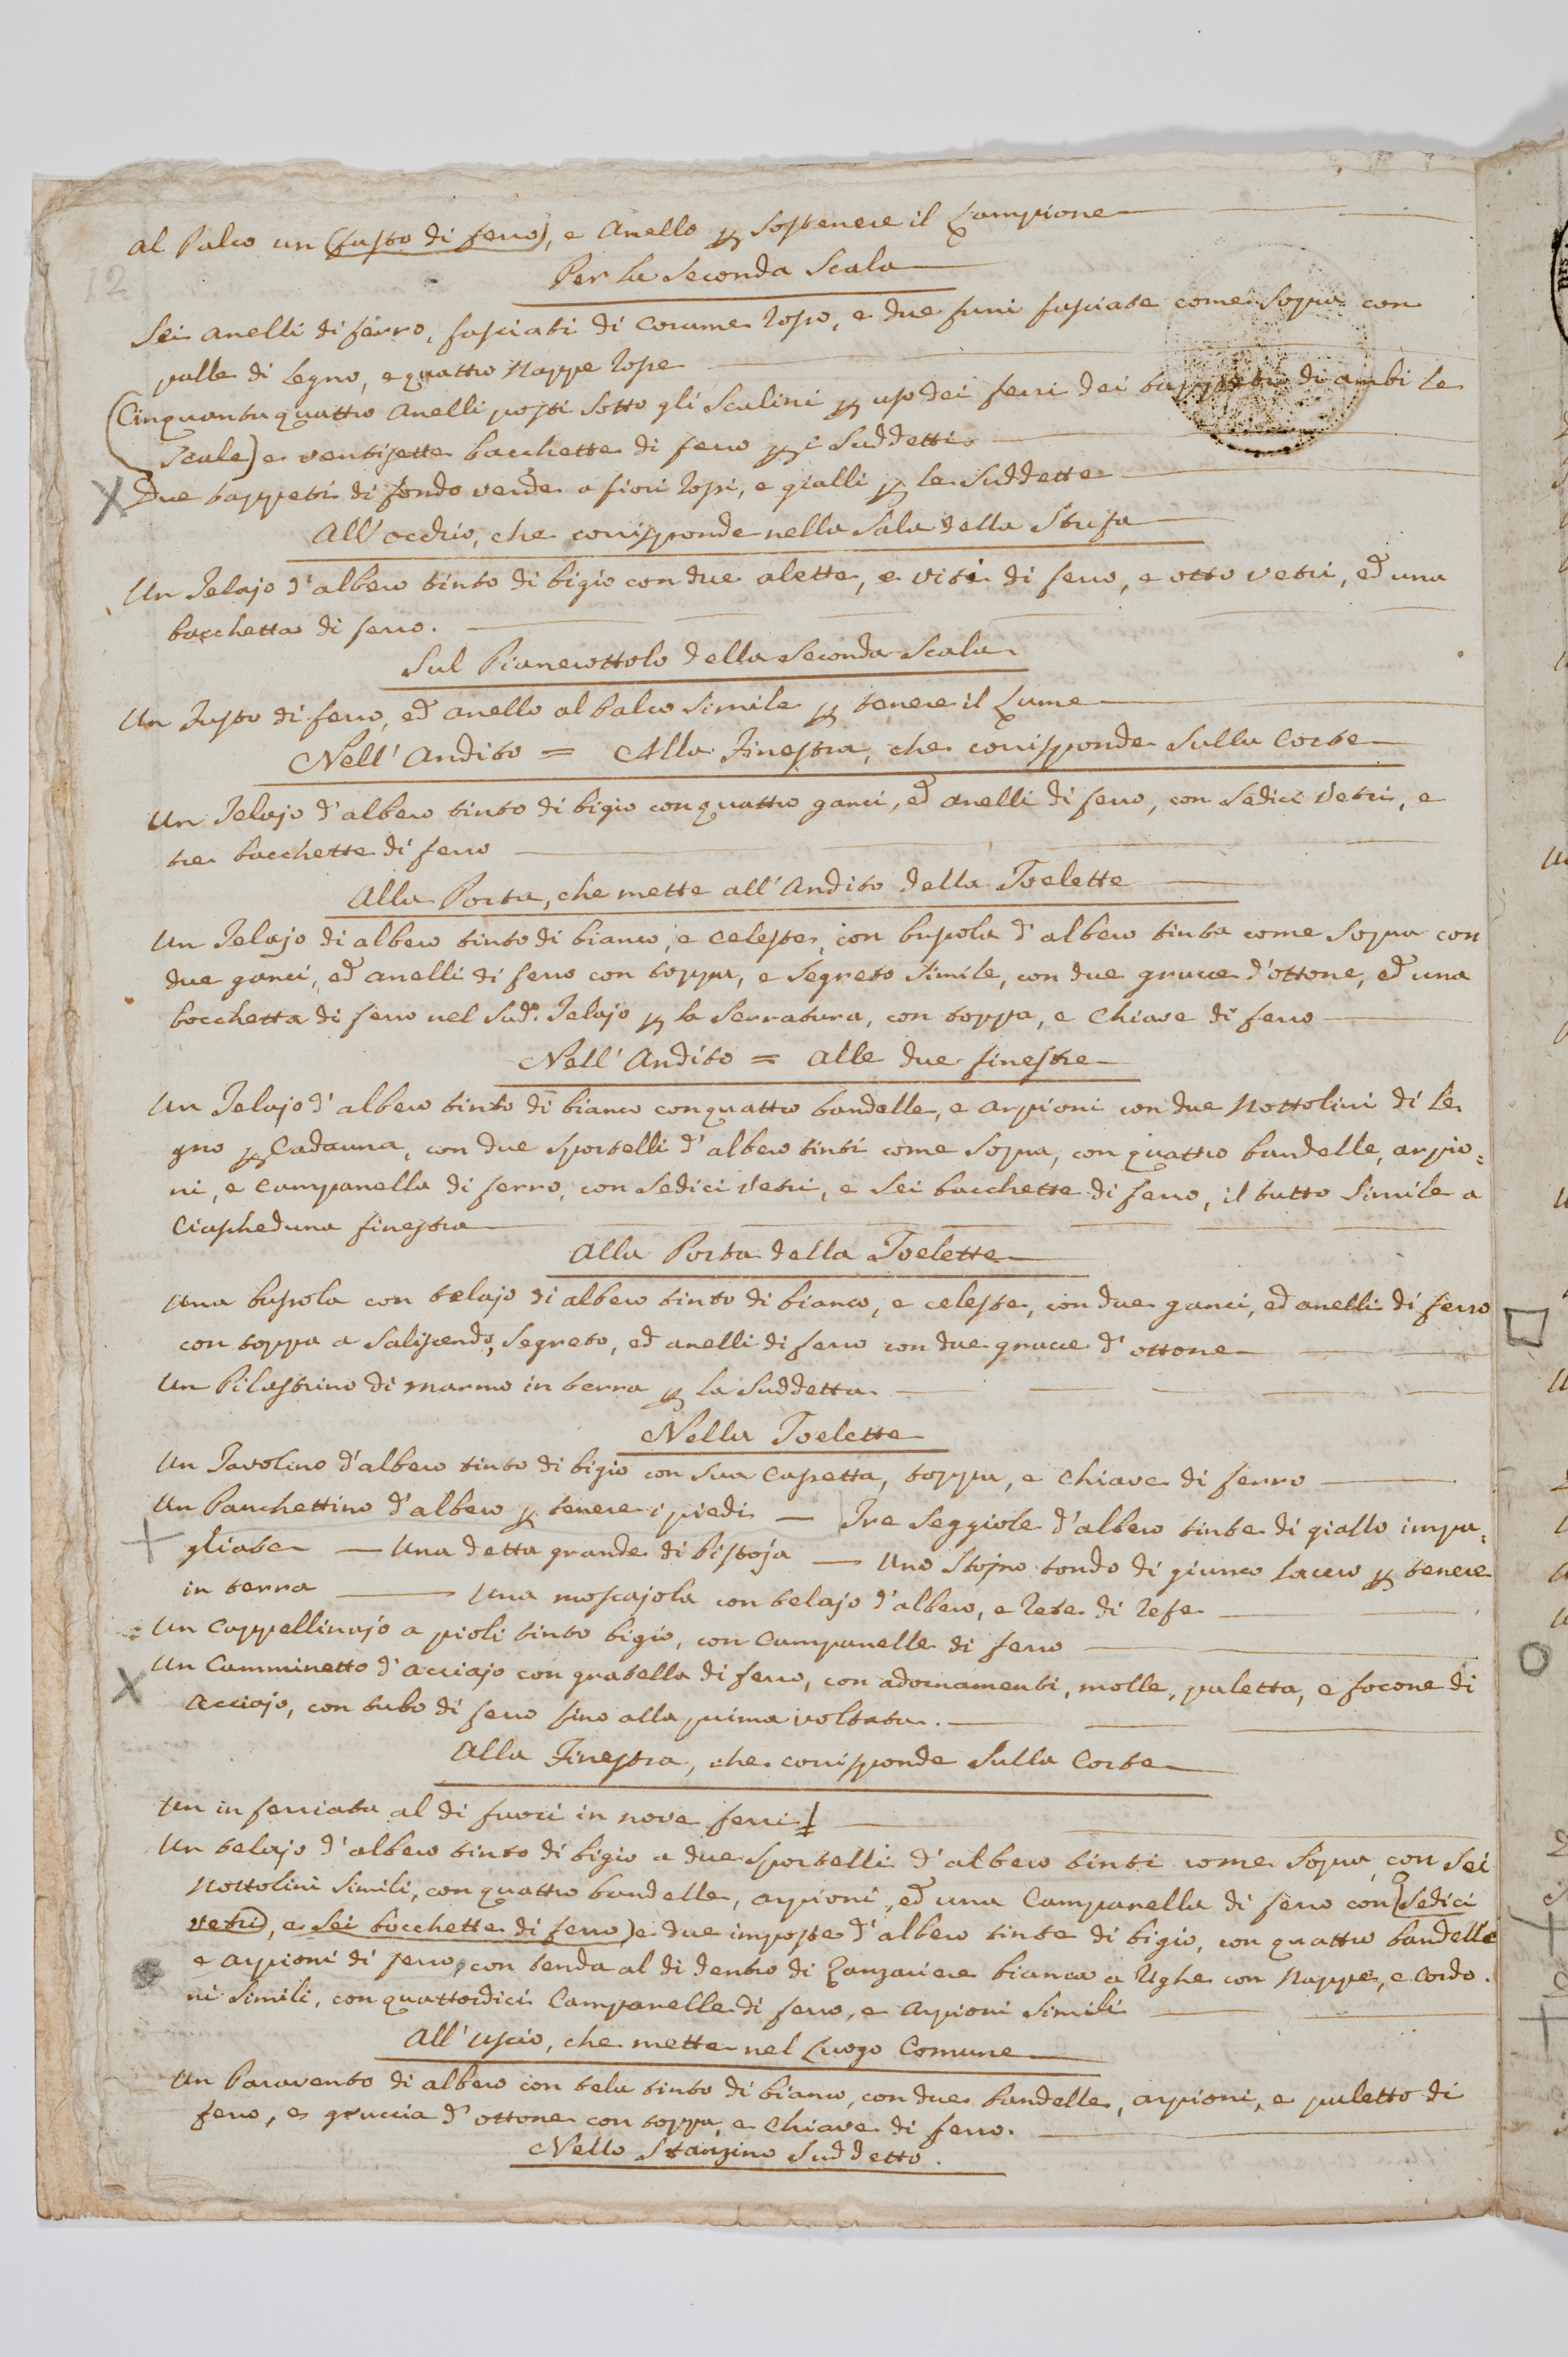 12
al Palco un (fusto di ferro), e Anello p Sostenere il Lampione
Per la Seconda Scala
Sei anelli di ferro, fasciati di Corame rosso, e due funi fasciate come Sopra con
palle di legno, e quattro Nappe rosse
(Cinquantaquattro Anelli posti Sotto gli Scalini p uso dei ferri dei tappeti di ambi le
Scale) e ventisette bacchette di ferro p i Suddetti
X Due tappeti di fondo verde a fiori rossi, e gialli p le Suddette
All'occhio, che corrisponde nella Sala della Stufa
Un Telajo d'albero tinto di bigio con due alette, e viti di ferro, e otto vetri, ed una
bacchetta di ferro.
Sul Pianerottolo della Seconda Scala
Un Fusto di ferro, ed anello al Palco Simile p tenere il Lume
Nell'Andito = Alla Finestra, che corrisponde Sulla Corte
Un Telajo d'albero tinto di bigio con quattro ganci, ed anelli di ferro, con Sedici Vetri, e
tre bacchette di ferro
Alla Porta, che mette all'Andito della Toelette
Un Telajo di albero tinto di bianco, e Celeste, con bussola d'albero tinta come Sopra con
due ganci, ed anelli di ferro con toppa, e Segreto Simile, con due grucce d'ottone, ed una
bocchetta di ferro nel Sud.º Telajo p la Serratura, con toppa, e Chiave di ferro
Nell'Andito = alle due finestre
Un Telajo d'albero tinto di bianco con quattro bandelle, e arpioni con due Nottolini di Le
gno p Cadauna, con due Sportelli d'albero tinti come Sopra, con quattro bandelle, arpio=
ni, e campanella di ferro, con Sedici Vetri, e Sei bacchette di ferro, il tutto Simile a
Ciascheduna finestra
Alla Porta della Toelette
Una bussola con telajo di albero tinto di bianco, e celeste, con due ganci, ed anelli di ferro
con toppa a Saliscendo, Segreto, ed anelli di ferro con due grucce d'ottone
Un Pilastrino di marmo in terra p la Suddetta.
Nella Toelette
Un Tavolino d'albero tinto di bigio con Sua Cassetta, toppa, e Chiave di ferro
Un Panchettino d'albero p tenere i piedi — Tre Seggiole d'albero tinte di giallo impa=
+ gliate — Una detta grande di Pistoja — Uno Stojno tondo di giunco Lacero p tenere
in terra — Una moscajola con telajo d'albero, e rete di refe
Un Cappellinajo a pioli tinto bigio, con Campanelle di ferro
X Un Camminetto d'acciajo con gratella di ferro, con adornamenti, molle, paletta, e focone di
Acciajo, con tubo di ferro fino alla prima voltata.
Alla Finestra, che corrisponde Sulla Corte
Un inferriata al di fuori in nove ferri
Un telajo d'albero tinto di bigio a due Sportelli d'albero tinti come Sopra, con Sei
Nottolini Simili, con quattro bandelle, arpioni, ed una Campanella di ferro con (Sedici
vetri), e Sei bacchette di ferro) e due imposte d'albero tinte di bigio, con quattro bandelle
e arpioni di ferro, con tenda al di dentro di Zanzariere bianca a Righe con Nappe, e Cordo.
ni Simili, con quattordici Campanelle di ferro, e Arpioni Simili
All'Uscio, che mette nel Luogo Comune
Un Paravento di albero con tela tinto di bianco, con due bandelle, arpioni, e paletto di
ferro, e gruccia d'ottone con toppa, e Chiave di ferro.
Nello Stanzino Suddetto.